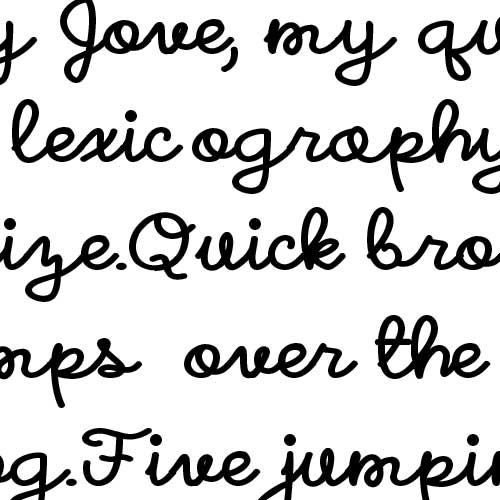 y Jove, my qu
lexicography
ize. Quick bro
mps over the
og. Five jumpin